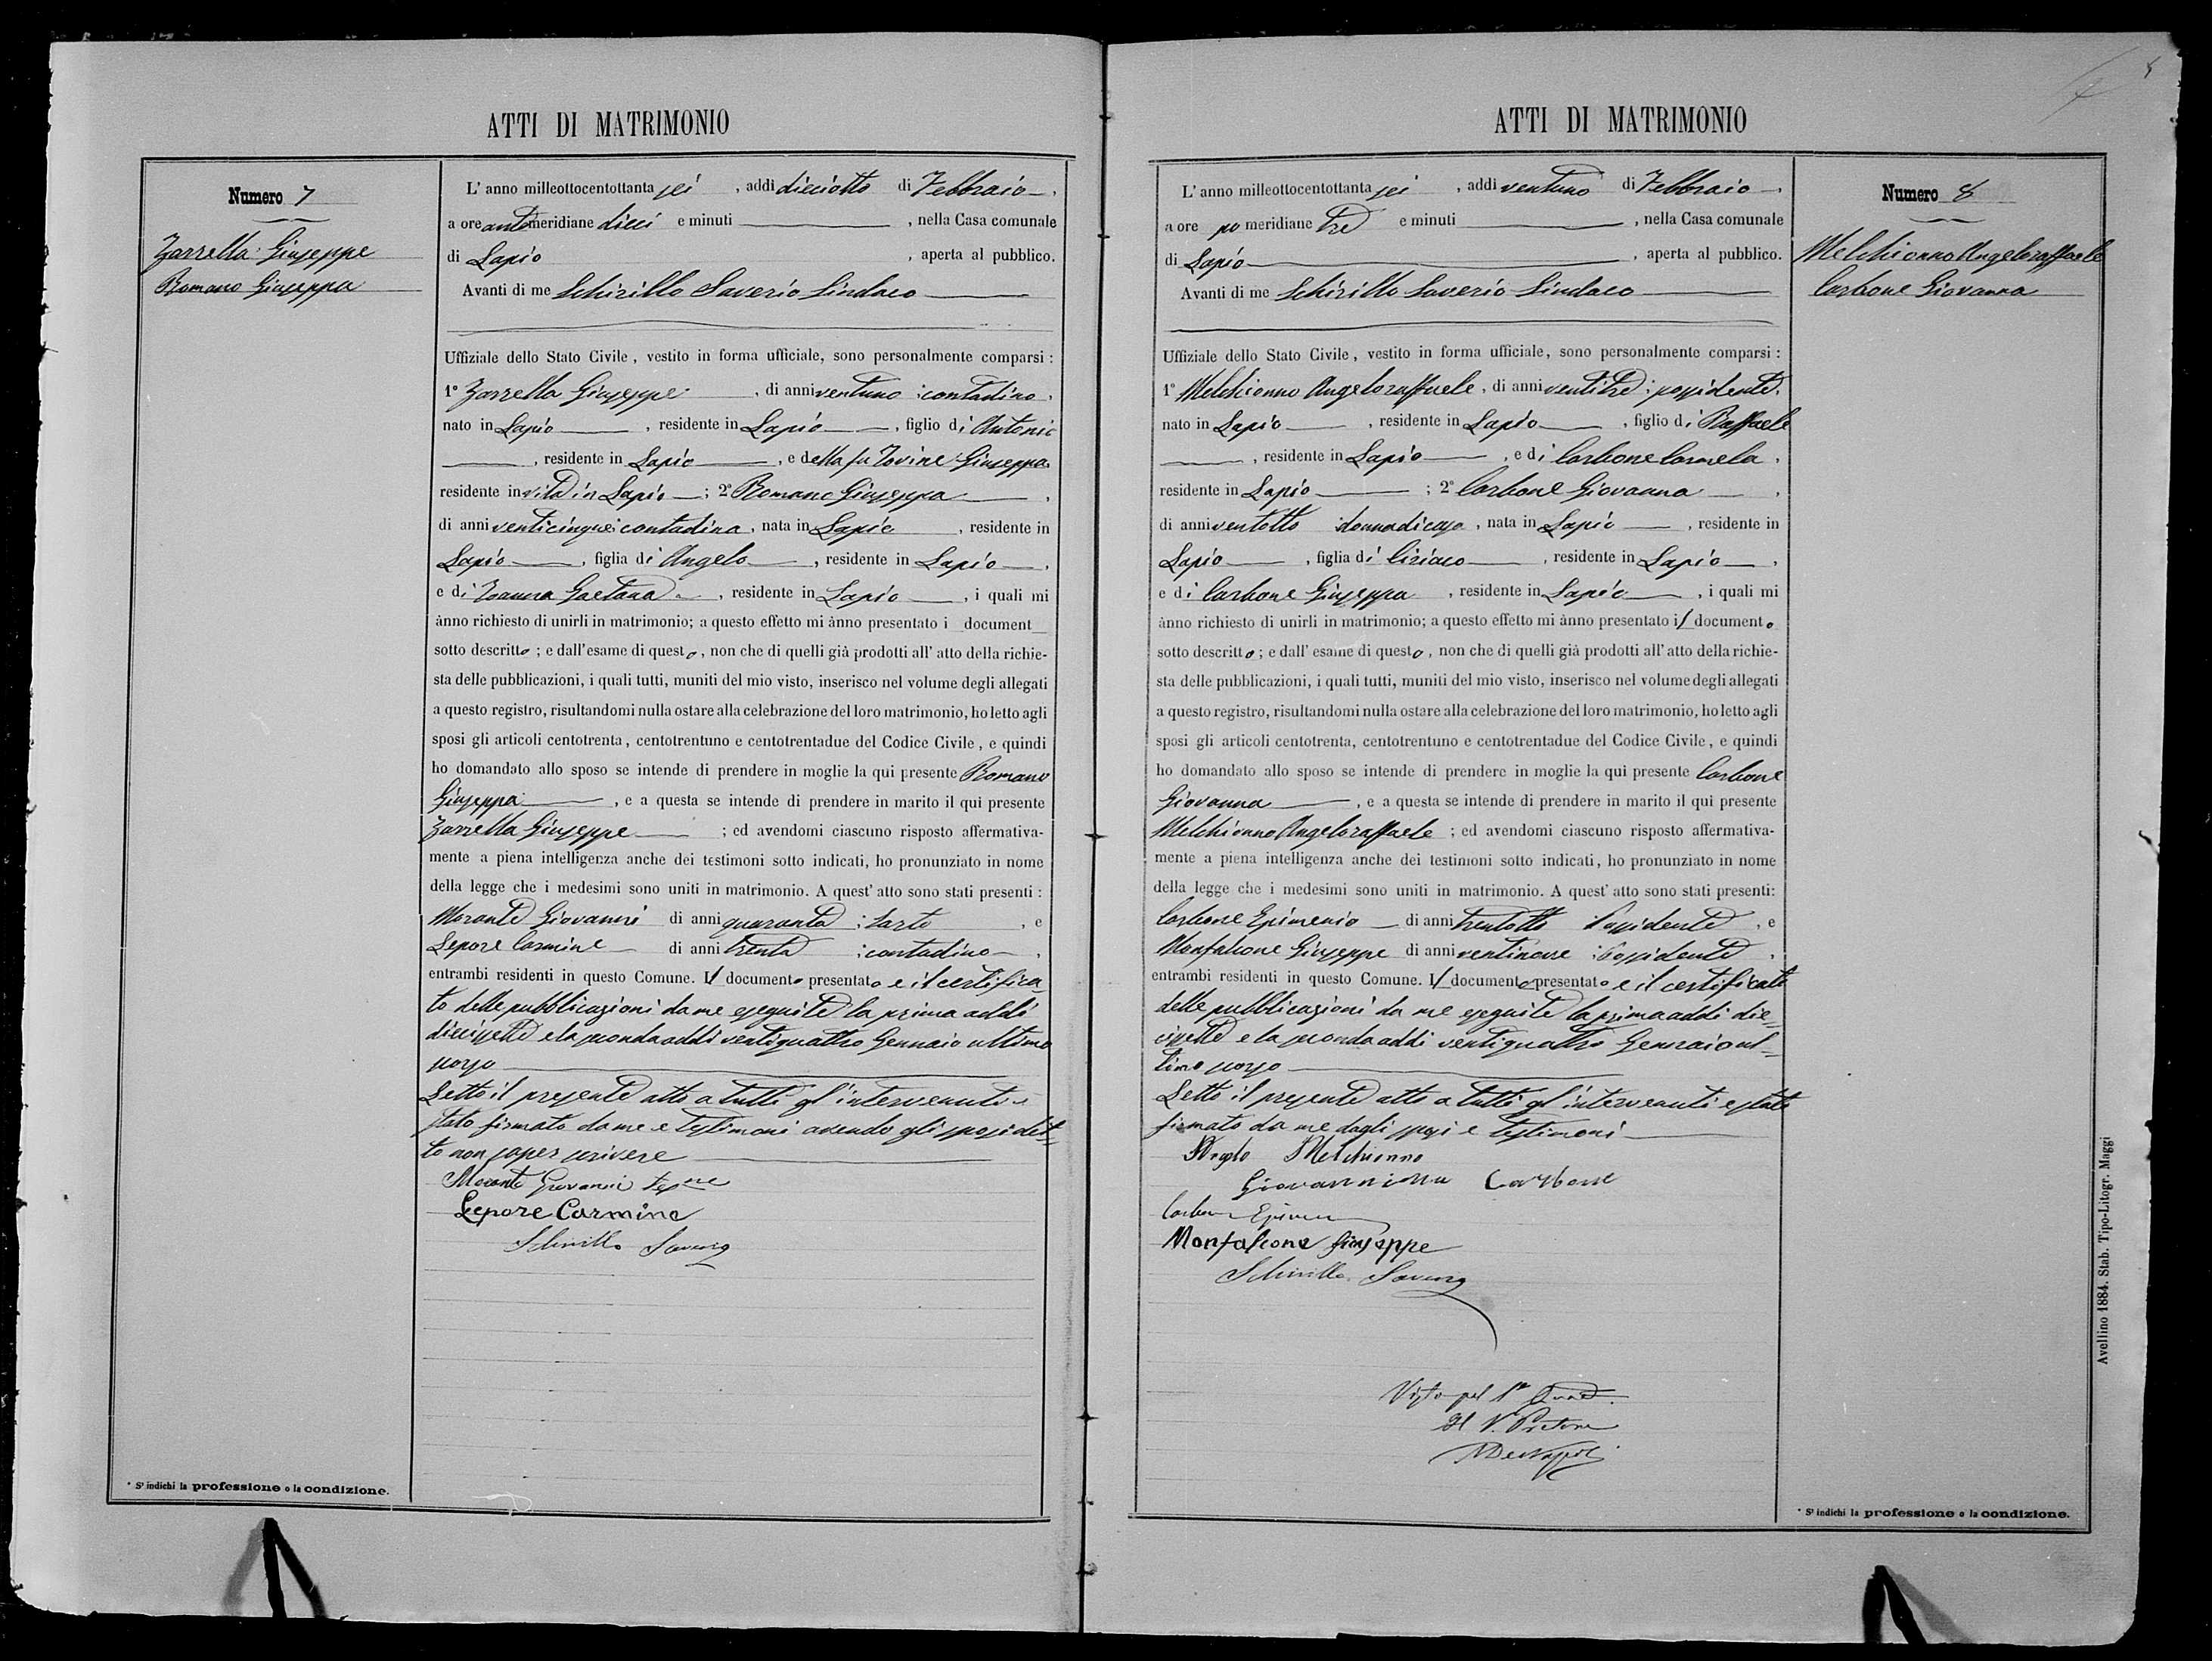 ATTI DI MATRIMONIO
Numero 7
Zarrella Giuseppe
Romano Giuseppa
L' anno milleottocentottanta sei , addi dieciotto di Febbraio
a ore antemeridiane dieci e minuti , nella Casa comunale
di Lapio , aperta al pubblico.
Avanti di me Schirillo Saverio Sindaco
Uffiziale dello Stato Civile, vestito in forma ufficiale, sono personalmente comparsi :
1° Zarrella Giuseppe , di anni ventuno ; contadino ,
nato in Lapio , residente in Lapio , figlio di Antonio
, residente in Lapio , e della fu Iovine Giuseppa
residente in vita in Lapio ; 2° Romano Giuseppa ,
di anni venticinque ; contadina , nata in Lapio , residente in
Lapio , figlia di Angelo , residente in Lapio ,
e di Ioanna Gaetana , residente in Lapio , i quali mi
ànno richiesto di unirli in matrimonio; a questo effetto mi ànno presentato i document
sotto descritto ; e dall'esame di questo , non che di quelli già prodotti all' atto della richie-
sta delle pubblicazioni, i quali tutti, muniti del mio visto, inserisco nel volume degli allegati
a questo registro, risultandomi nulla ostare alla celebrazione del loro matrimonio, ho letto agli
sposi gli articoli centotrenta, centotrentuno e centotrentadue del Codice Civile, e quindi
ho domandato allo sposo se intende di prendere in moglie la qui presente Romano
Giuseppa , e a questa se intende di prendere in marito il qui presente
Zarrella Giuseppe ; ed avendomi ciascuno risposto affermativa-
mente a piena intelligenza anche dei testimoni sotto indicati, ho pronunziato in nome
della legge che i medesimi sono uniti in matrimonio. A quest' atto sono stati presenti :
Morante Giovanni di anni quaranta ; sarto , e
Lepore Carmine di anni trenta ; contadino ,
entrambi residenti in questo Comune. Il documento presentato e il certifica-
to delle pubblicazioni da me eseguite la prima addi
diecisette e la seconda addi ventiquattro Gennaio ultimo
scorso
Letto il presente atto a tutti gl' intervenuti è
stato firmato da me e testimoni avendo gli sposi det-
to non saper scrivere
Morante Giovanni testne
Lepore Carmine
Schirillo Saverio
* Si indichi la professione o la condizione.
ATTI DI MATRIMONIO
Numero 8
Melchionno Angeloraffaele
Carbone Giovanna
L' anno milleottocentottanta sei , addi ventuno di Febbraio
a ore po meridiane tre e minuti , nella Casa comunale
di Lapio , aperta al pubblico.
Avanti di me Schirillo Saverio Sindaco
Uffiziale dello Stato Civile, vestito in forma ufficiale, sono personalmente comparsi :
1° Melchionno Angeloraffaele , di anni ventitre ; possidente ,
nato in Lapio , residente in Lapio , figlio di Raffaele
, residente in Lapio , e di Carbone Carmela ,
residente in Lapio ; 2° Carbone Giovanna ,
di anni ventotto donna di casa , nata in Lapio , residente in
Lapio , figlia di Ciriaco , residente in Lapio ,
e di Carbone Giuseppa , residente in Lapio , i quali mi
ànno richiesto di unirli in matrimonio; a questo effetto mi ànno presentato il documento
sotto descritto ; e dall' esame di questo , non che di quelli già prodotti all' atto della richie-
sta delle pubblicazioni, i quali tutti, muniti del mio visto, inserisco nel volume degli allegati
a questo registro, risultandomi nulla ostare alla celebrazione del loro matrimonio, ho letto agli
sposi gli articoli centotrenta, centotrentuno e centotrentadue del Codice Civile, e quindi
ho domandato allo sposo se intende di prendere in moglie la qui presente Carbone
Giovanna , e a questa se intende di prendere in marito il qui presente
Melchionno Angeloraffaele ; ed avendomi ciascuno risposto affermativa-
mente a piena intelligenza anche dei testimoni sotto indicati, ho pronunziato in nome
della legge che i medesimi sono uniti in matrimonio. A quest' atto sono stati presenti:
Carbone Epimenio di anni trentotto Possidente , e
Monfalcone Giuseppe di anni ventinove ; Possidente ,
entrambi residenti in questo Comune. Il documento presentato e il certificato
delle pubblicazioni da me eseguite la prima addi die-
cisette e la seconda addi ventiquattro Gennaio ul-
timo scorso
Letto il presente atto a tutti gl' intervenuti e stato
firmato da me dagli sposi e testimoni
Melchionno
Giovannina Carbone
Carbone Epimenio
Monfalcone Giuseppe
Schirillo Saverio
Visto pel
Il V. Pretore
* Si indichi la professione o la condizione.
Avellino 1884. Stab. Tipo-Litogr. Maggi